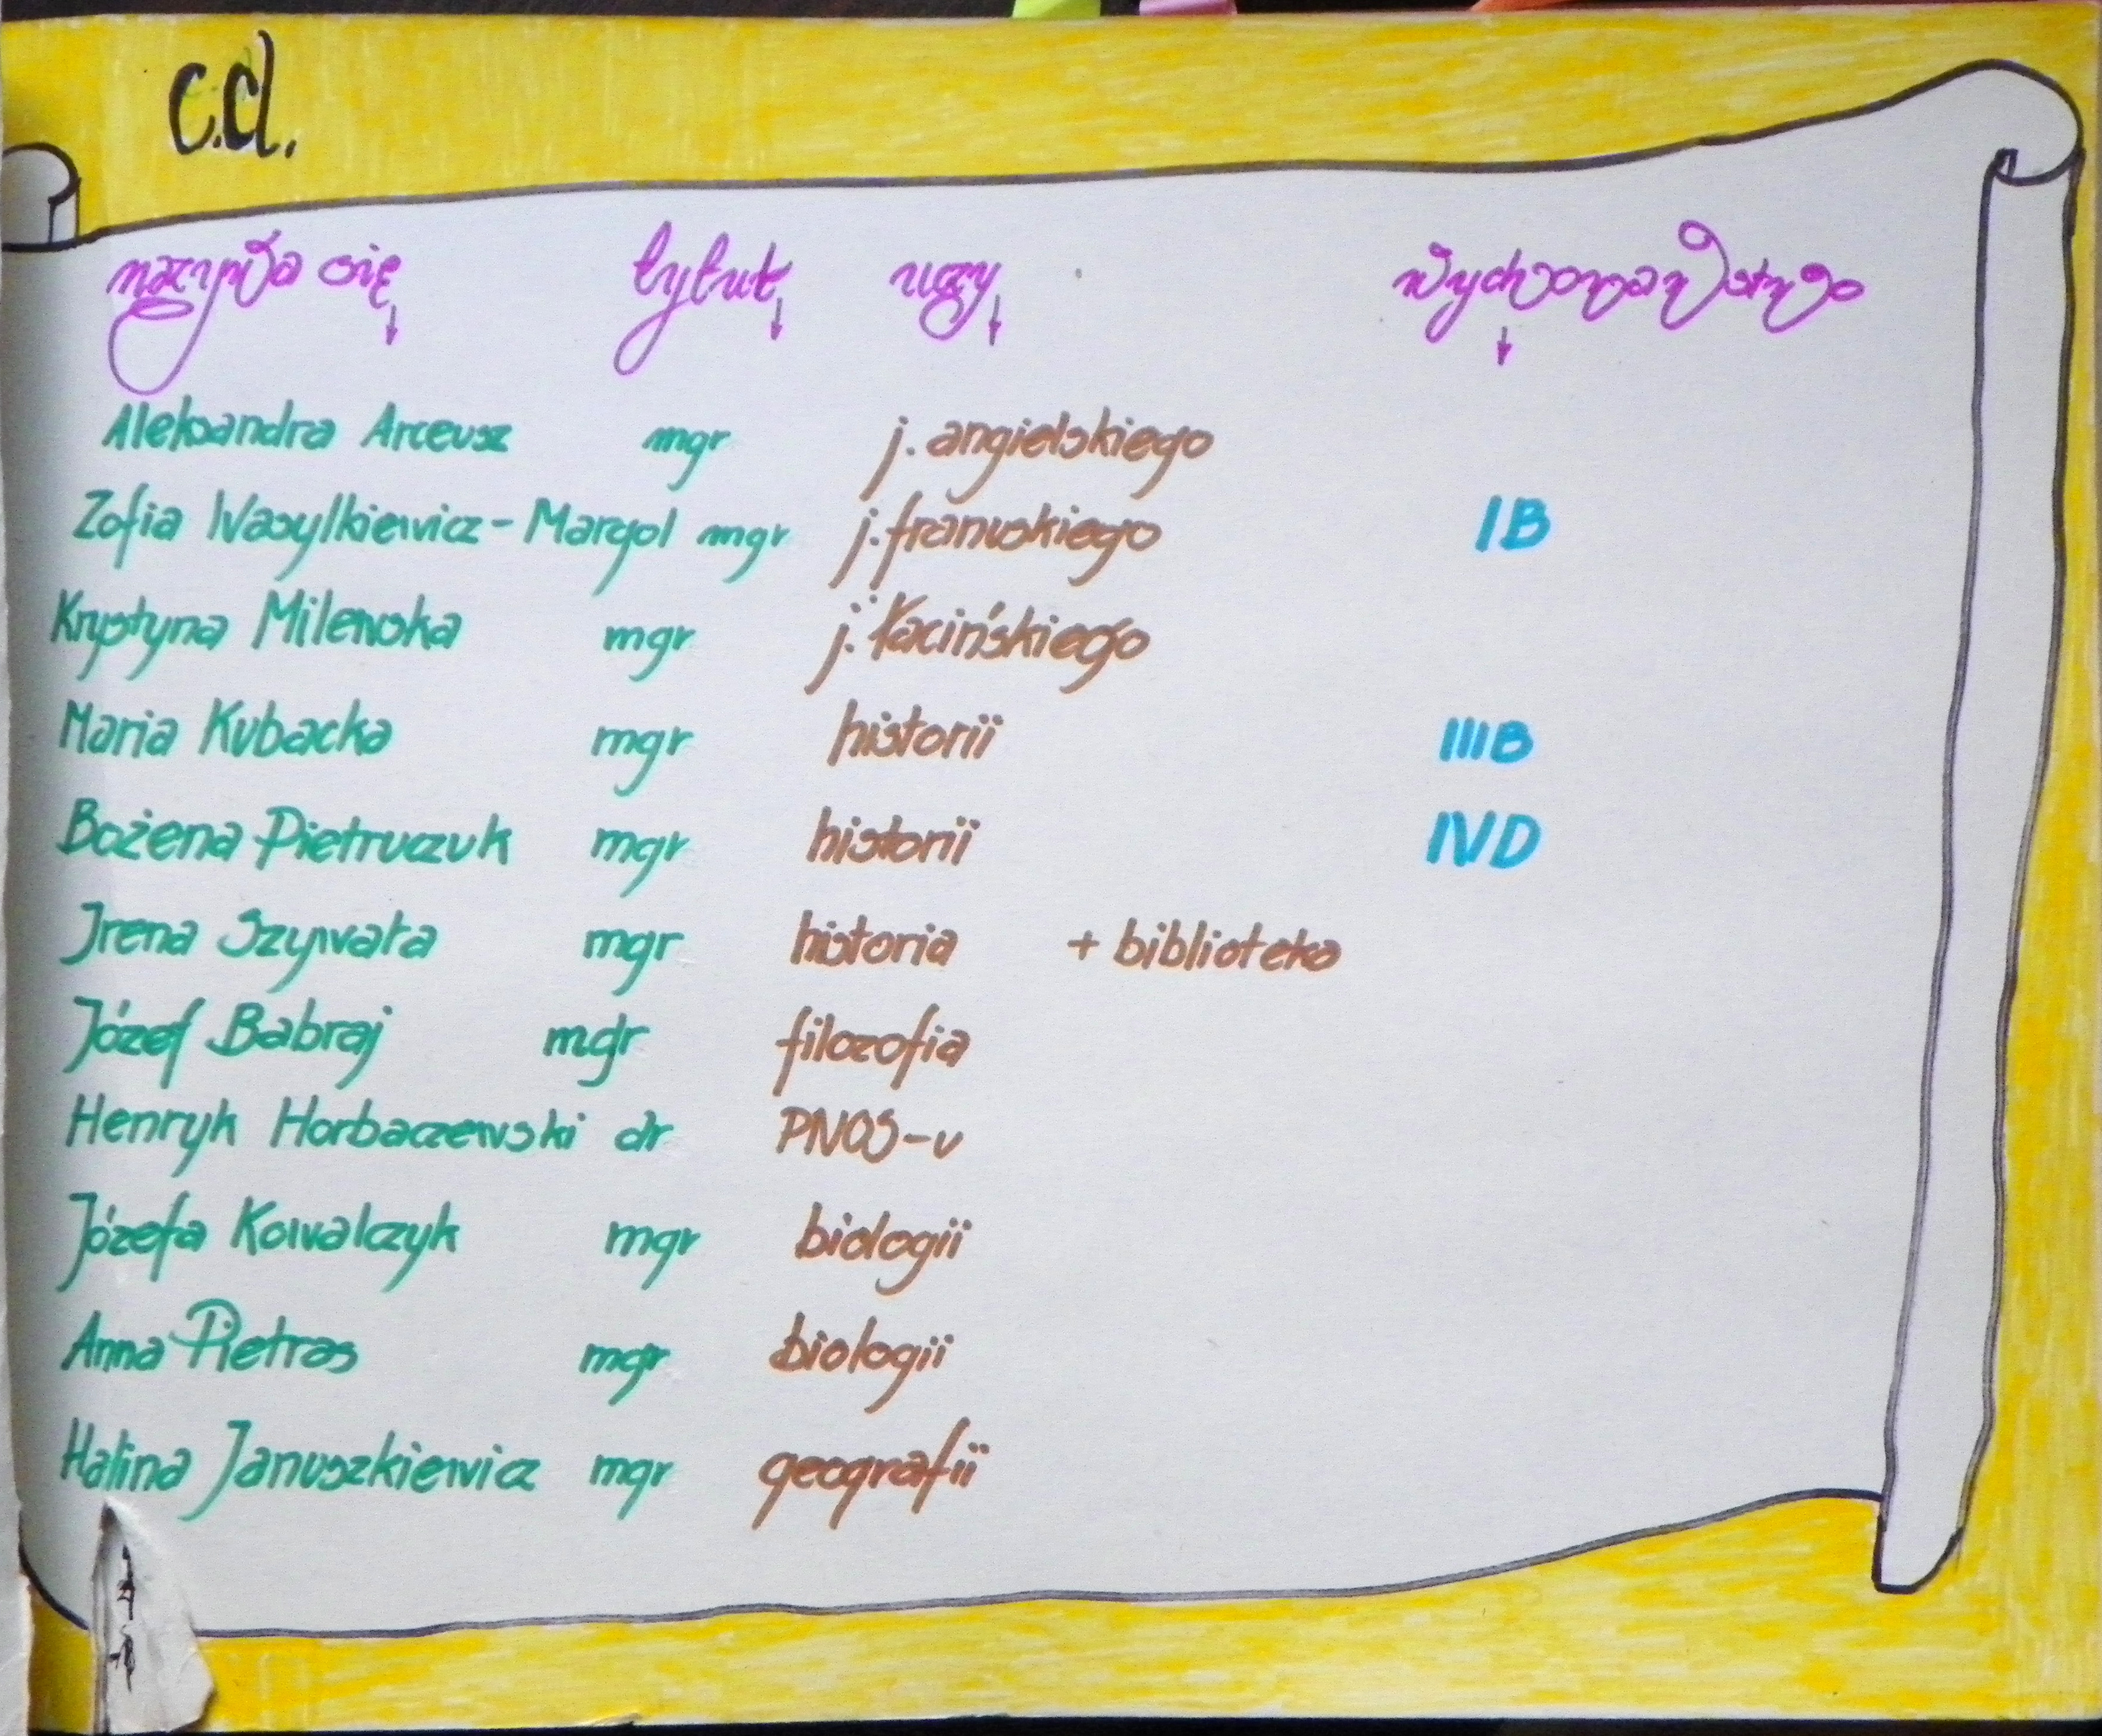 c.d.
nazywa się tytuł uczy wychowawstwo
Aleksandra Arceusz mgr j. angielskiego
Zofia Wasylkiewicz-Margol mgr j. francuskiego IB
Krystyna Milewska mgr j. łacińskiego
Maria Kubacka mgr historii IIIB
Bożena Pietruczuk mgr historii IVD
Irena Szywała mgr historia + biblioteka
Józef Babraj mgr filozofia
Henryk Horbaczewski dr PNOS-u
Józefa Kowalczyk mgr biologii
Anna Pietras mgr biologii
Halina Januszkiewicz mgr geografii